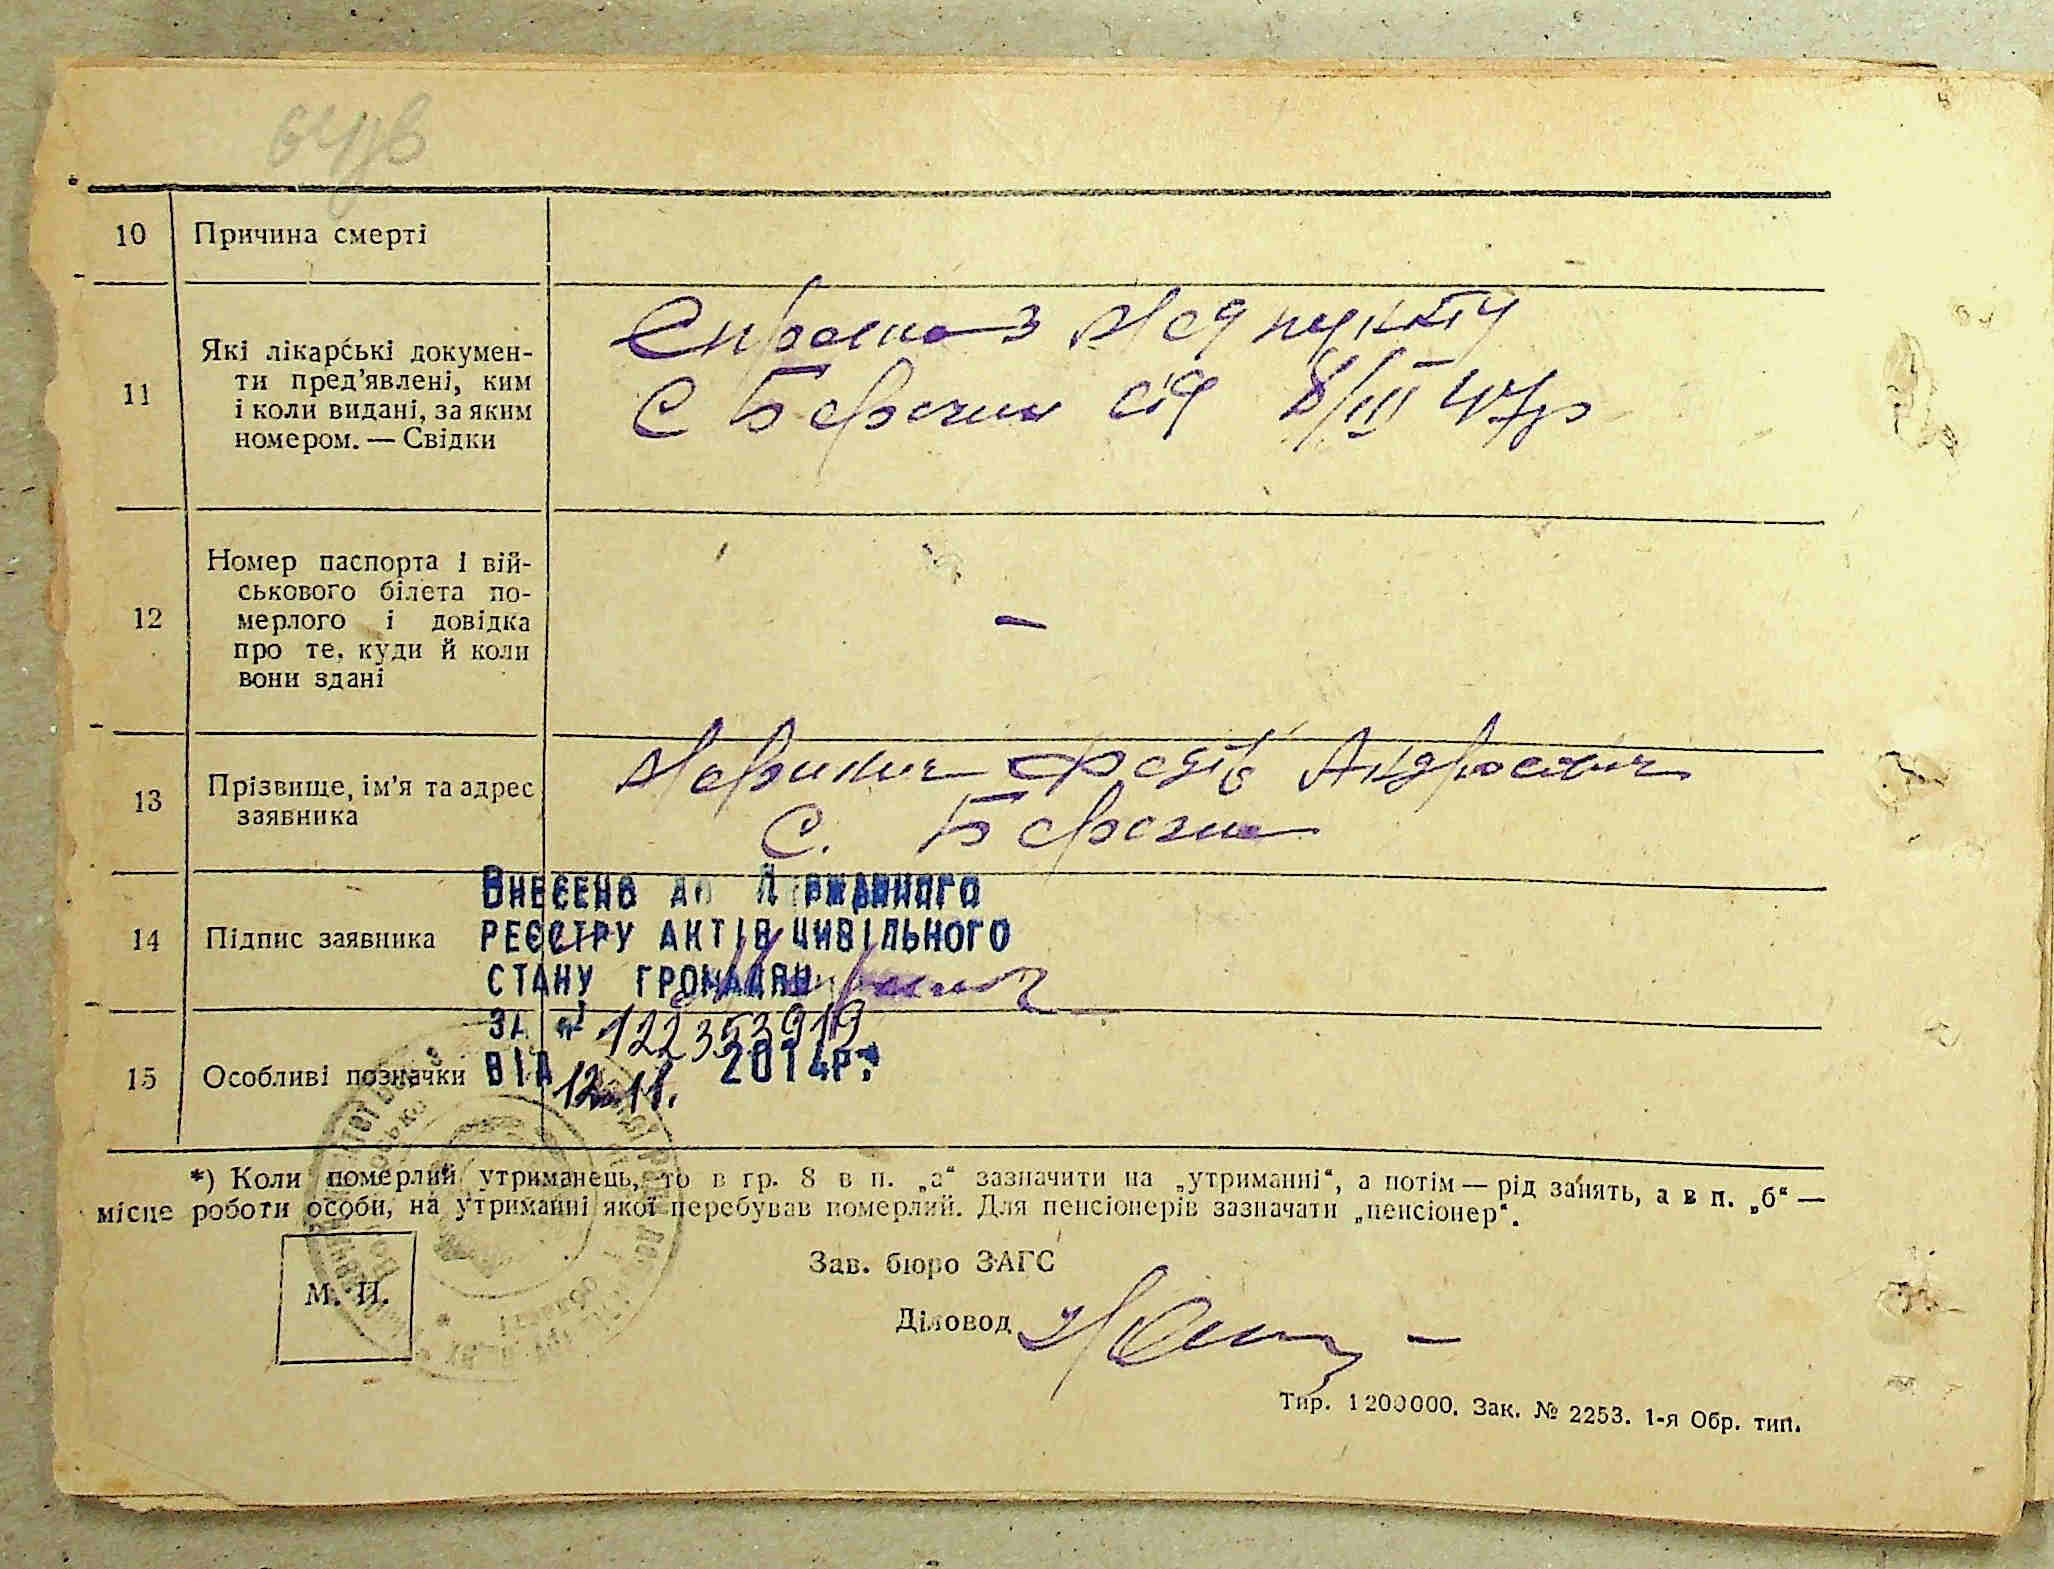 10 Причина смерті
11 Які лікарські докумен-
ти пред'явлені, ким
і коли видані, за яким
номером. — Свідки
з Медпункту
с від 8/III 47р
12 Номер паспорта і вій-
ськового білета по-
мерлого і довідка
про те, куди й коли
вони здані
–
13 Прізвище, ім'я та адрес
заявника
Андроєвич
С.
14 Підпис заявника
Внесено до Державного
реєстру актів цивільного
стану громадян
за № 122353919
від 12.11. 2014р.
15 Особливі позначки
*) Коли померлий утриманець, то в гр. 8 в п. „а“ зазначити на „утриманні“, а потім — рід занять, а в п. „б“ —
місце роботи особи, на утриманні якої перебував померлий. Для пенсіонерів зазначати „пенсіонер“.
М. П.
Зав. бюро ЗАГС
Діловод
Тир. 1200000. Зак. № 2253. 1-я Обр. тип.